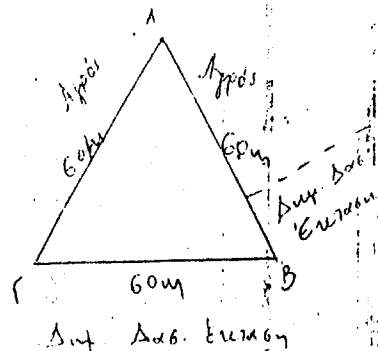 Α
Αγρός
Αγρός
60m
60m
Δημ. Δασ.
Έκταση
Γ
60m
Β
Δημ. Δασ. Έκταση